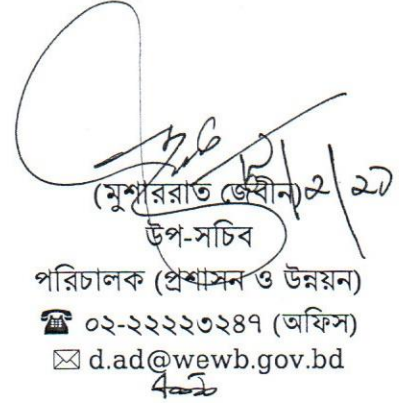 (মুশাররাত জেবীন)
উপ-সচিব
পরিচালক (প্রশাসন ও উন্নয়ন)
☎ ০২-২২২২৩২৪৭ (অফিস)
✉ d.ad@wewb.gov.bd